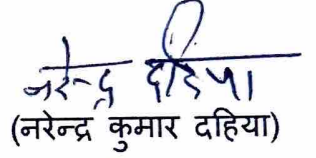 नरेन्द्र दहिया
(नरेन्द्र कुमार दहिया)